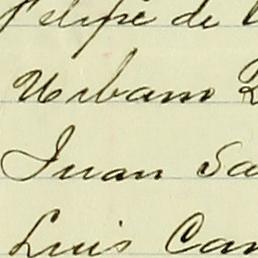 Felipe de
Urbano
Juan Sa
Luis Can